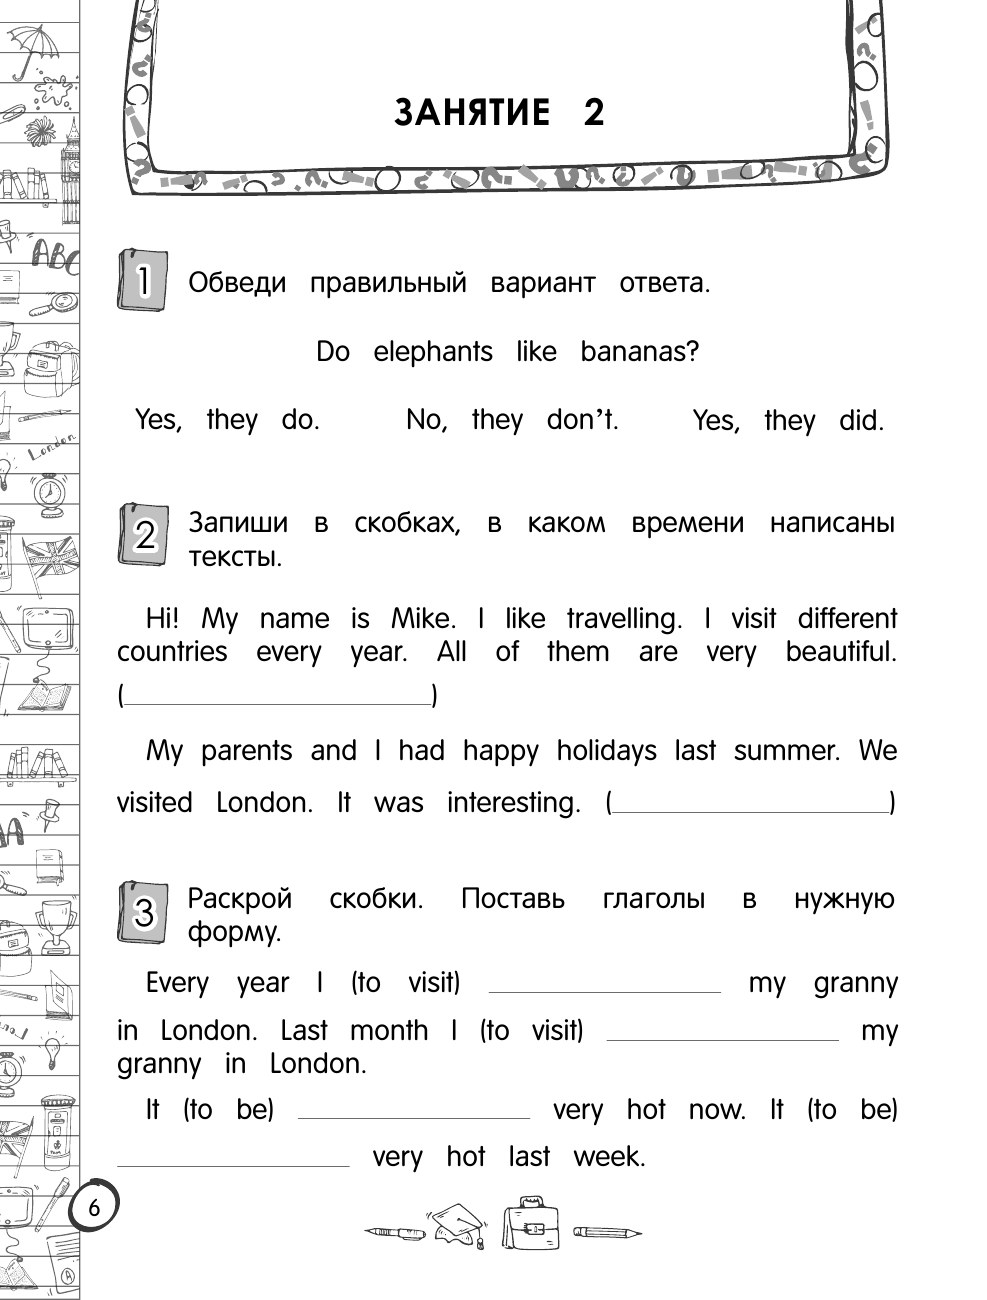 ЗАНЯТИЕ 2
1 Обведи правильный вариант ответа.
Do elephants like bananas?
Yes, they do. No, they don’t. Yes, they did.
2 Запиши в скобках, в каком времени написаны
тексты.
Hi! My name is Mike. I like travelling. I visit different
countries every year. All of them are very beautiful.
(______________________)
My parents and I had happy holidays last summer. We
visited London. It was interesting. (____________________)
3 Раскрой скобки. Поставь глаголы в нужную
форму.
Every year I (to visit) ________________ my granny
in London. Last month I (to visit) ________________ my
granny in London.
It (to be) ________________ very hot now. It (to be)
________________ very hot last week.
6
ABC
London